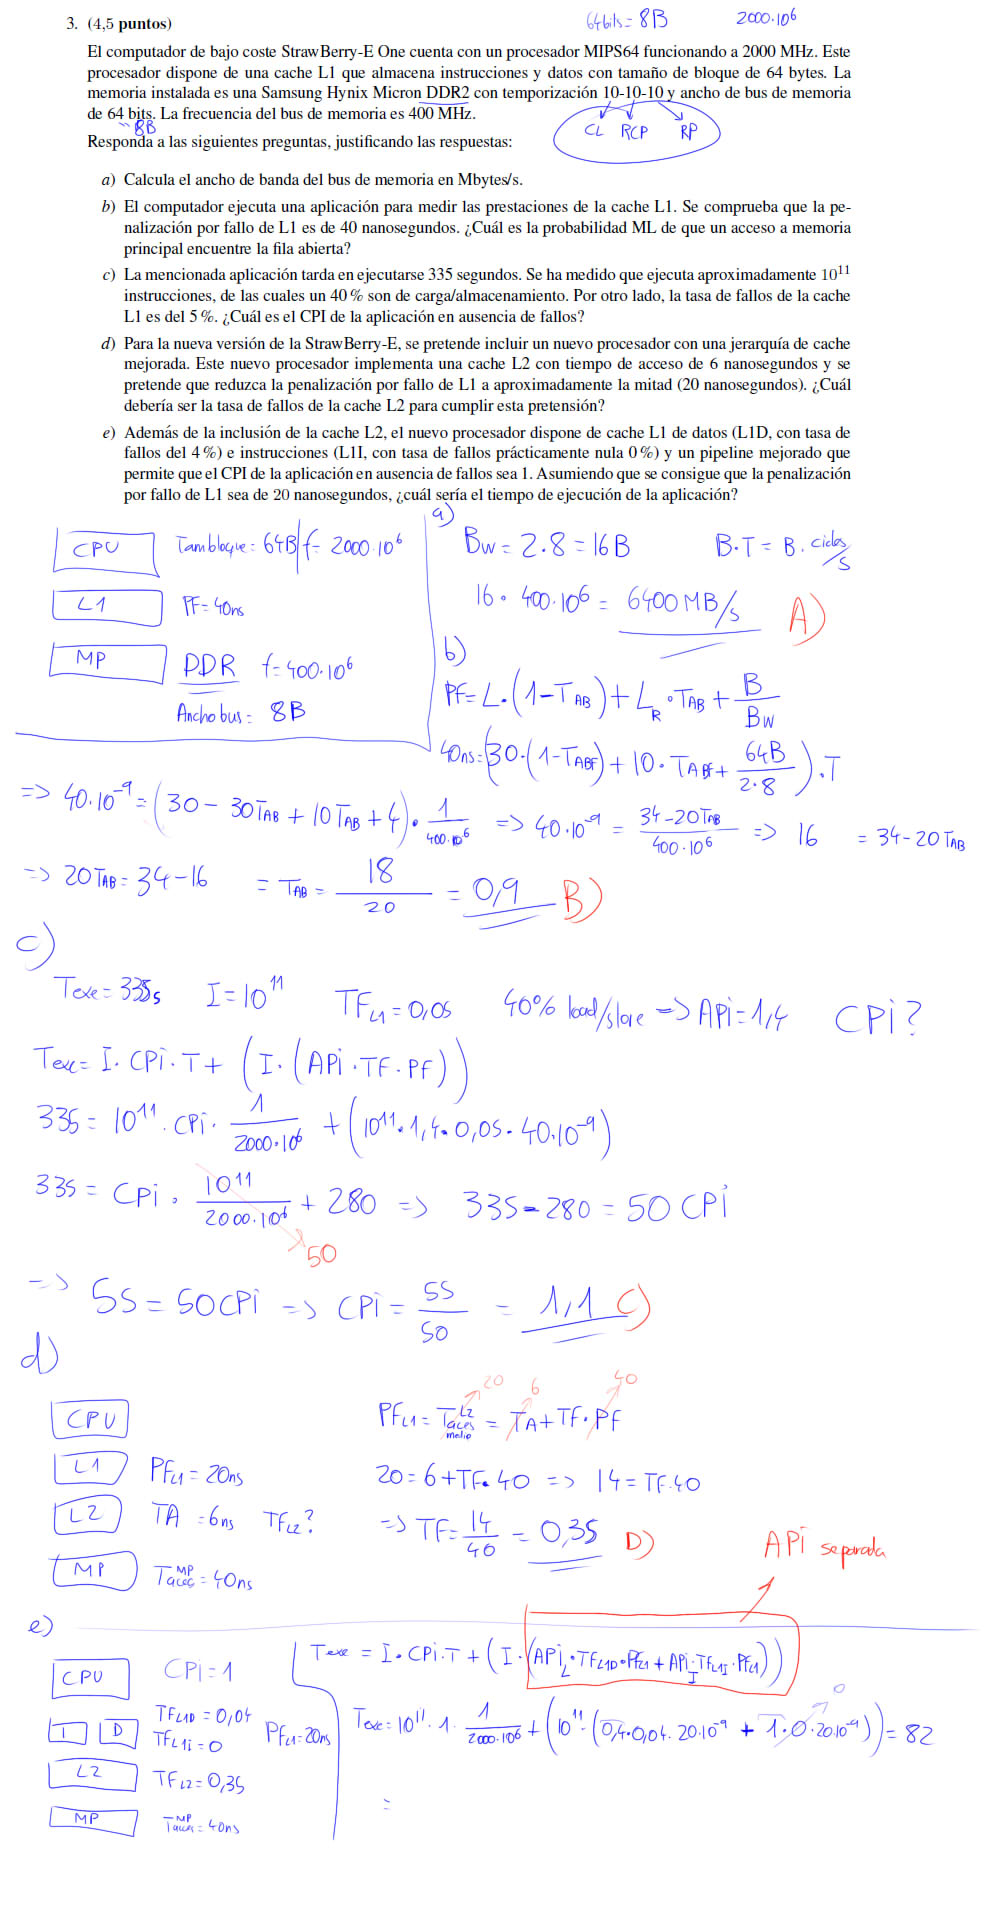 64bits = 8B 2000·10⁶
3. (4,5 puntos)
El computador de bajo coste StrawBerry-E One cuenta con un procesador MIPS64 funcionando a 2000 MHz. Este
procesador dispone de una cache L1 que almacena instrucciones y datos con tamaño de bloque de 64 bytes. La
memoria instalada es una Samsung Hynix Micron DDR2 con temporización 10-10-10 y ancho de bus de memoria
de 64 bits. La frecuencia del bus de memoria es 400 MHz.
8B CL RCP RP
Responda a las siguientes preguntas, justificando las respuestas:
a) Calcula el ancho de banda del bus de memoria en Mbytes/s.
b) El computador ejecuta una aplicación para medir las prestaciones de la cache L1. Se comprueba que la pe-
nalización por fallo de L1 es de 40 nanosegundos. ¿Cuál es la probabilidad ML de que un acceso a memoria
principal encuentre la fila abierta?
c) La mencionada aplicación tarda en ejecutarse 335 segundos. Se ha medido que ejecuta aproximadamente 10¹¹
instrucciones, de las cuales un 40 % son de carga/almacenamiento. Por otro lado, la tasa de fallos de la cache
L1 es del 5 %. ¿Cuál es el CPI de la aplicación en ausencia de fallos?
d) Para la nueva versión de la StrawBerry-E, se pretende incluir un nuevo procesador con una jerarquía de cache
mejorada. Este nuevo procesador implementa una cache L2 con tiempo de acceso de 6 nanosegundos y se
pretende que reduzca la penalización por fallo de L1 a aproximadamente la mitad (20 nanosegundos). ¿Cuál
debería ser la tasa de fallos de la cache L2 para cumplir esta pretensión?
e) Además de la inclusión de la cache L2, el nuevo procesador dispone de cache L1 de datos (L1D, con tasa de
fallos del 4 %) e instrucciones (L1I, con tasa de fallos prácticamente nula 0 %) y un pipeline mejorado que
permite que el CPI de la aplicación en ausencia de fallos sea 1. Asumiendo que se consigue que la penalización
por fallo de L1 sea de 20 nanosegundos, ¿cuál sería el tiempo de ejecución de la aplicación?
CPU Tambloque: 64B f= 2000·10⁶
L1 PF=40ns
MP DDR f=400·10⁶
Ancho bus: 8B
a)
Bw = 2·8 = 16B B·T = B· ciclos/s
16· 400·10⁶ = 6400 MB/s A)
b)
PF= L·(1-T_AB) + L_R·T_AB + B/Bw
40ns = (30·(1-T_ABF) + 10·T_ABF + 64B/2·8)·T
=> 40·10⁻⁹ = (30 - 30T_AB + 10T_AB + 4)· 1/400·10⁶ => 40·10⁻⁹ = 34-20T_AB/400·10⁶ => 16 = 34-20T_AB
=> 20T_AB = 34-16 = T_AB = 18/20 = 0,9 B)
c)
Texe = 335s I=10¹¹ TF_L1 = 0,05 40% load/store => APi=1,4 CPi?
Texe = I·CPi·T + (I·(APi·TF·PF))
335 = 10¹¹·CPi· 1/2000·10⁶ + (10¹¹·1,4·0,05·40·10⁻⁹)
335 = CPi· 10¹¹/2000·10⁶ + 280 => 335-280 = 50 CPi
50
=> 55 = 50CPi => CPi = 55/50 = 1,1 C)
d)
20 6 40
CPU PF_L1 = T^L2_acces medio = TA+TF·PF
L1 PF_L1 = 20ns 20 = 6+TF·40 => 14 = TF·40
L2 TA = 6ns TF_L2? => TF = 14/40 = 0,35 D)
MP T^MP_acces = 40ns
APi separada
e)
Texe = I·CPi·T + (I·(APi_L·TF_L1D·PF_L1 + APi_I·TF_L1I·PF_L1))
CPU CPi=1
0
I D TF_L1D = 0,04
TF_L1i = 0 PF_L1=20ns
Texe=10¹¹·1· 1/2000·10⁶ + (10¹¹·(0,4·0,04·20·10⁻⁹ + 1·0·20·10⁻⁹)) = 82
L2 TF_L2 = 0,35
=
MP T^MP_acces = 40ns